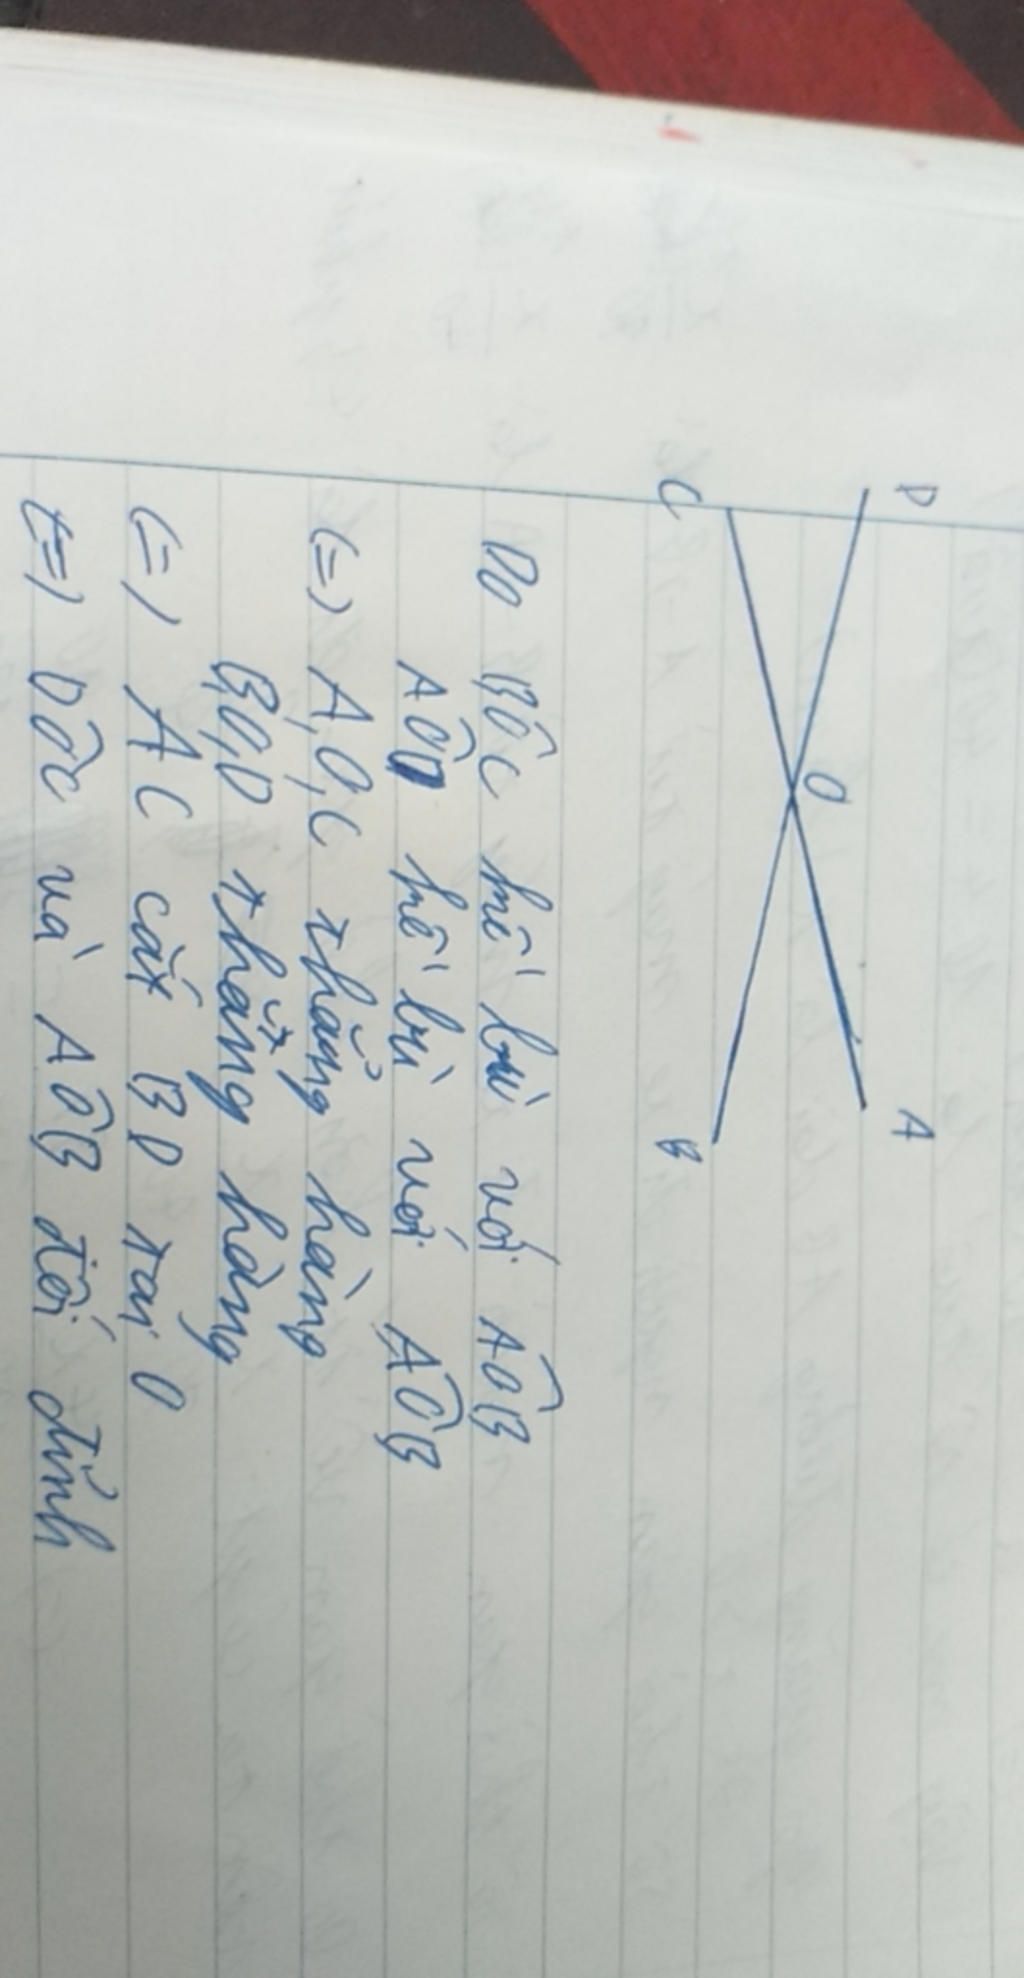 D
A
O
C
B
Do BÔC kề bù với AÔB
AÔD kề bù với AÔB
(=) A,O,C thẳng hàng
B,O,D thẳng hàng
(=) AC cắt BD tại O
(=) DÔC và AÔB đối đỉnh